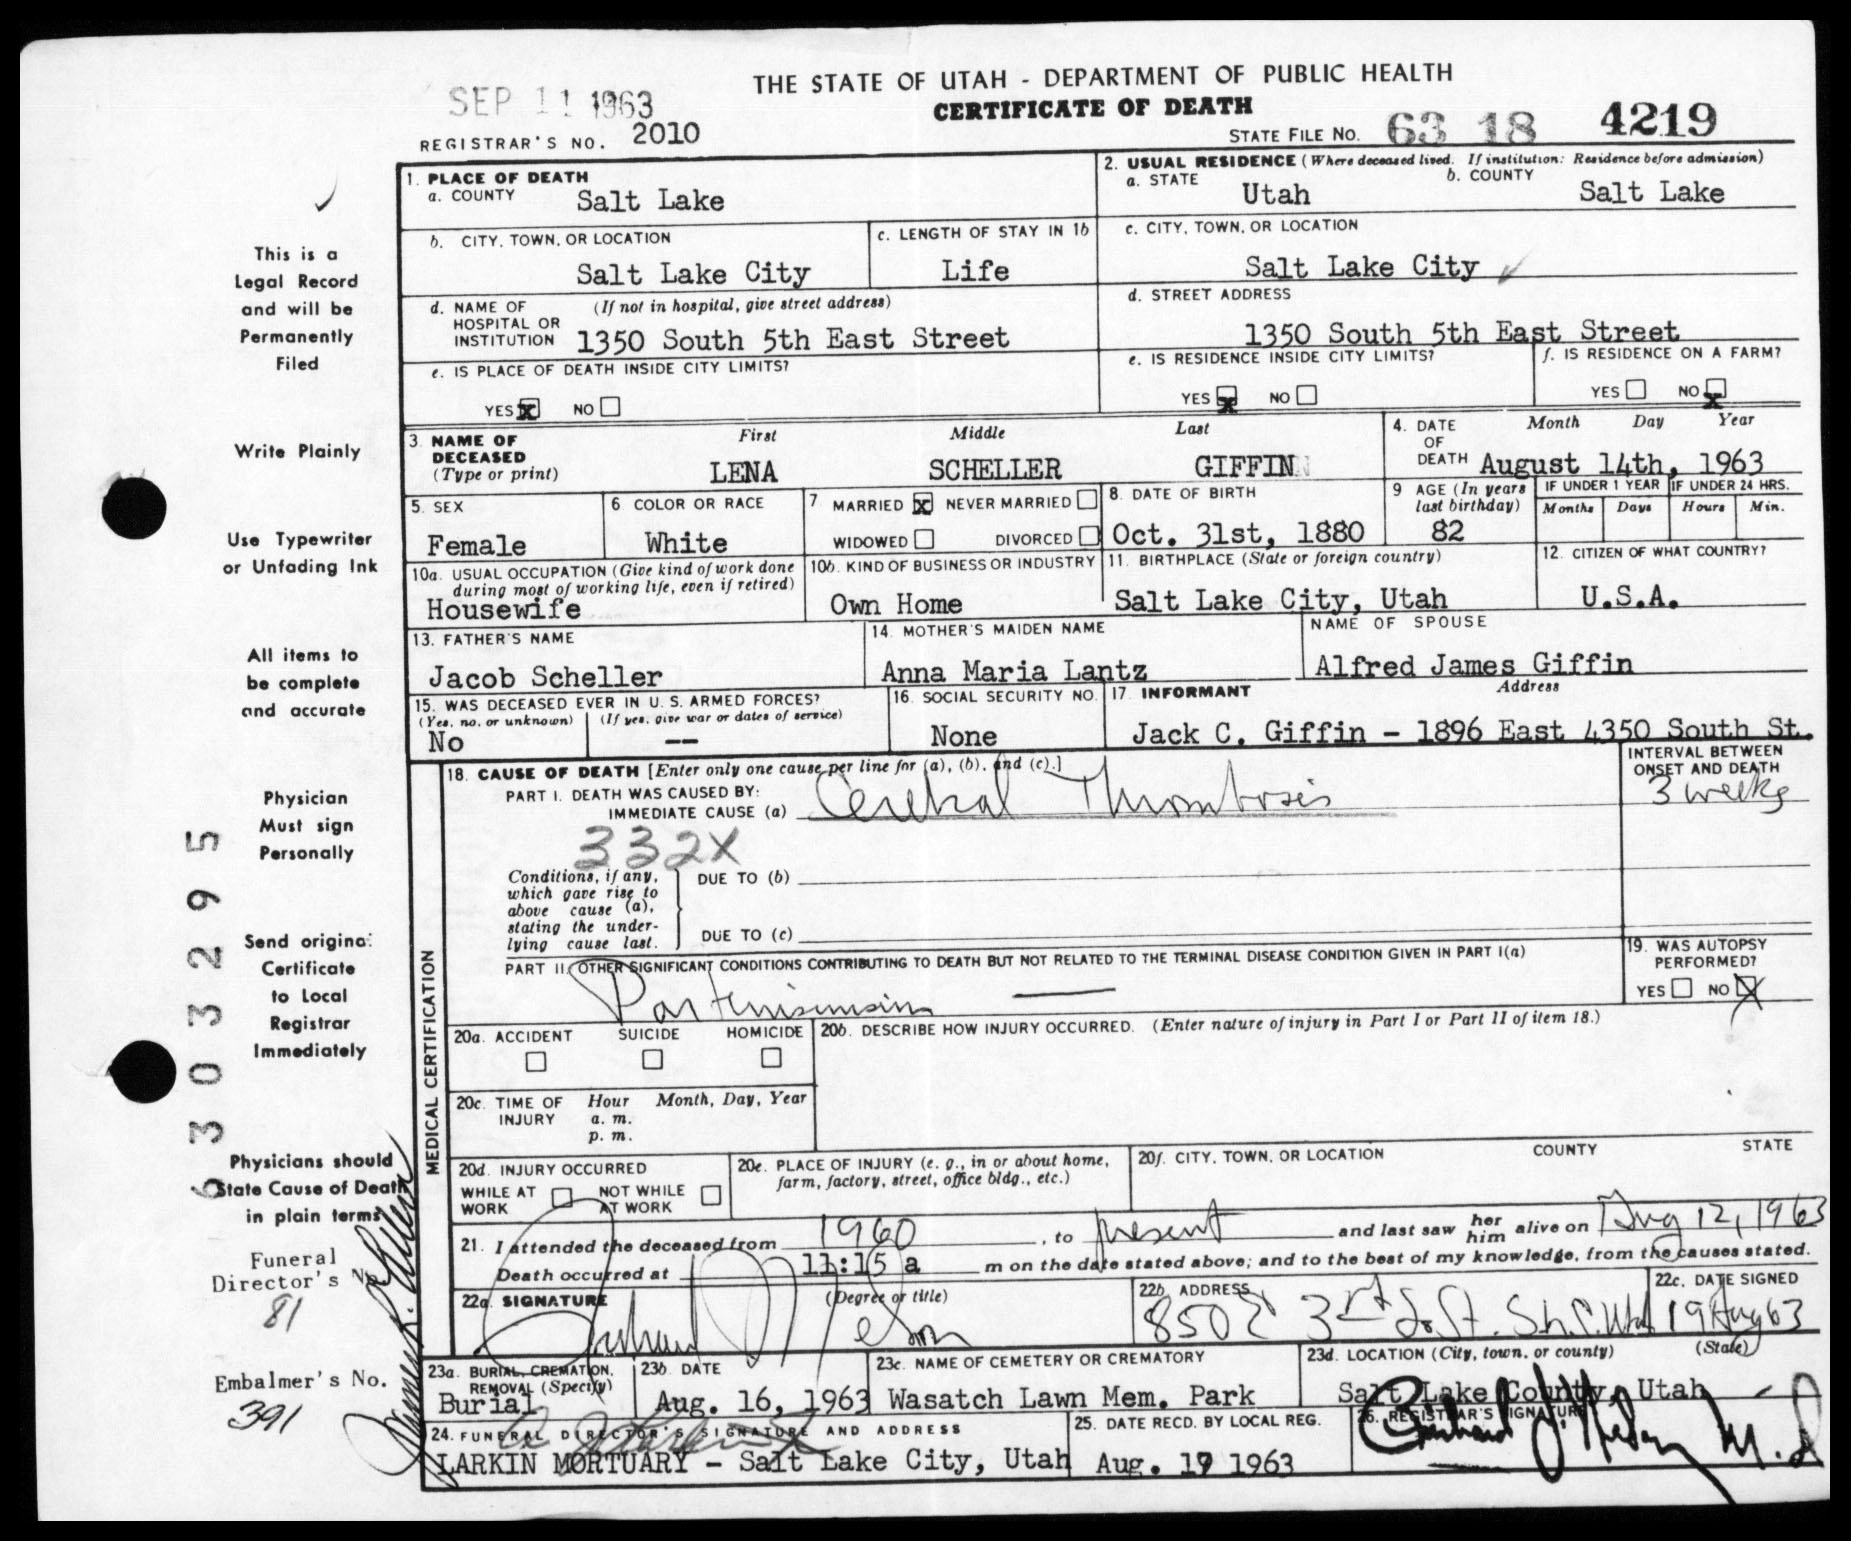 THE STATE OF UTAH - DEPARTMENT OF PUBLIC HEALTH
SEP 11 1963
CERTIFICATE OF DEATH
REGISTRAR'S NO. 2010
STATE FILE NO. 63 18 4219
1. PLACE OF DEATH
a. COUNTY Salt Lake
2. USUAL RESIDENCE (Where deceased lived. If institution: Residence before admission)
a. STATE Utah b. COUNTY Salt Lake
b. CITY, TOWN, OR LOCATION Salt Lake City
c. LENGTH OF STAY IN 1b Life
c. CITY, TOWN, OR LOCATION Salt Lake City
d. NAME OF HOSPITAL OR INSTITUTION (If not in hospital, give street address) 1350 South 5th East Street
d. STREET ADDRESS 1350 South 5th East Street
e. IS PLACE OF DEATH INSIDE CITY LIMITS? YES X NO
e. IS RESIDENCE INSIDE CITY LIMITS? YES X NO
f. IS RESIDENCE ON A FARM? YES NO X
3. NAME OF DECEASED (Type or print) First LENA Middle SCHELLER Last GIFFIN
4. DATE OF DEATH Month Day Year August 14th, 1963
5. SEX Female
6 COLOR OR RACE White
7 MARRIED X NEVER MARRIED WIDOWED DIVORCED
8. DATE OF BIRTH Oct. 31st, 1880
9 AGE (In years last birthday) 82
IF UNDER 1 YEAR Months Days
IF UNDER 24 HRS. Hours Min.
10a. USUAL OCCUPATION (Give kind of work done during most of working life, even if retired) Housewife
10b. KIND OF BUSINESS OR INDUSTRY Own Home
11. BIRTHPLACE (State or foreign country) Salt Lake City, Utah
12. CITIZEN OF WHAT COUNTRY? U.S.A.
13. FATHER'S NAME Jacob Scheller
14. MOTHER'S MAIDEN NAME Anna Maria Lantz
NAME OF SPOUSE Alfred James Giffin
15. WAS DECEASED EVER IN U. S. ARMED FORCES? (Yes, no, or unknown) No (If yes, give war or dates of service) --
16. SOCIAL SECURITY NO. None
17. INFORMANT Address Jack C. Giffin - 1896 East 4350 South St.
MEDICAL CERTIFICATION
18. CAUSE OF DEATH [Enter only one cause per line for (a), (b), and (c).]
INTERVAL BETWEEN ONSET AND DEATH
PART I. DEATH WAS CAUSED BY:
IMMEDIATE CAUSE (a) Cerebral Thrombosis 3 weeks
332X
Conditions, if any, which gave rise to above cause (a), stating the underlying cause last.
DUE TO (b)
DUE TO (c)
PART II. OTHER SIGNIFICANT CONDITIONS CONTRIBUTING TO DEATH BUT NOT RELATED TO THE TERMINAL DISEASE CONDITION GIVEN IN PART I(a)
19. WAS AUTOPSY PERFORMED? YES NO X
20a. ACCIDENT SUICIDE HOMICIDE
20b. DESCRIBE HOW INJURY OCCURRED. (Enter nature of injury in Part I or Part II of item 18.)
20c. TIME OF INJURY Hour a. m. p. m. Month, Day, Year
20d. INJURY OCCURRED WHILE AT WORK NOT WHILE AT WORK
20e. PLACE OF INJURY (e. g., in or about home, farm, factory, street, office bldg., etc.)
20f. CITY, TOWN, OR LOCATION COUNTY STATE
21. I attended the deceased from 1960, to present and last saw her him alive on Aug 12, 1963
Death occurred at 11:15 a m on the date stated above; and to the best of my knowledge, from the causes stated.
22a. SIGNATURE (Degree or title)
22b. ADDRESS
22c. DATE SIGNED 19 Aug 63
23a. BURIAL, CREMATION, REMOVAL (Specify) Burial
23b. DATE Aug. 16, 1963
23c. NAME OF CEMETERY OR CREMATORY Wasatch Lawn Mem. Park
23d. LOCATION (City, town, or county) (State) Salt Lake County, Utah
24. FUNERAL DIRECTOR'S SIGNATURE AND ADDRESS
LARKIN MORTUARY - Salt Lake City, Utah
25. DATE RECD. BY LOCAL REG. Aug. 19 1963
26. REGISTRAR'S SIGNATURE
This is a
Legal Record
and will be
Permanently
Filed
Write Plainly
Use Typewriter
or Unfading Ink
All items to
be complete
and accurate
Physician
Must sign
Personally
Send original
Certificate
to Local
Registrar
Immediately
Physicians should
State Cause of Death
in plain terms
Funeral
Director's No.
81
Embalmer's No.
391
6303295